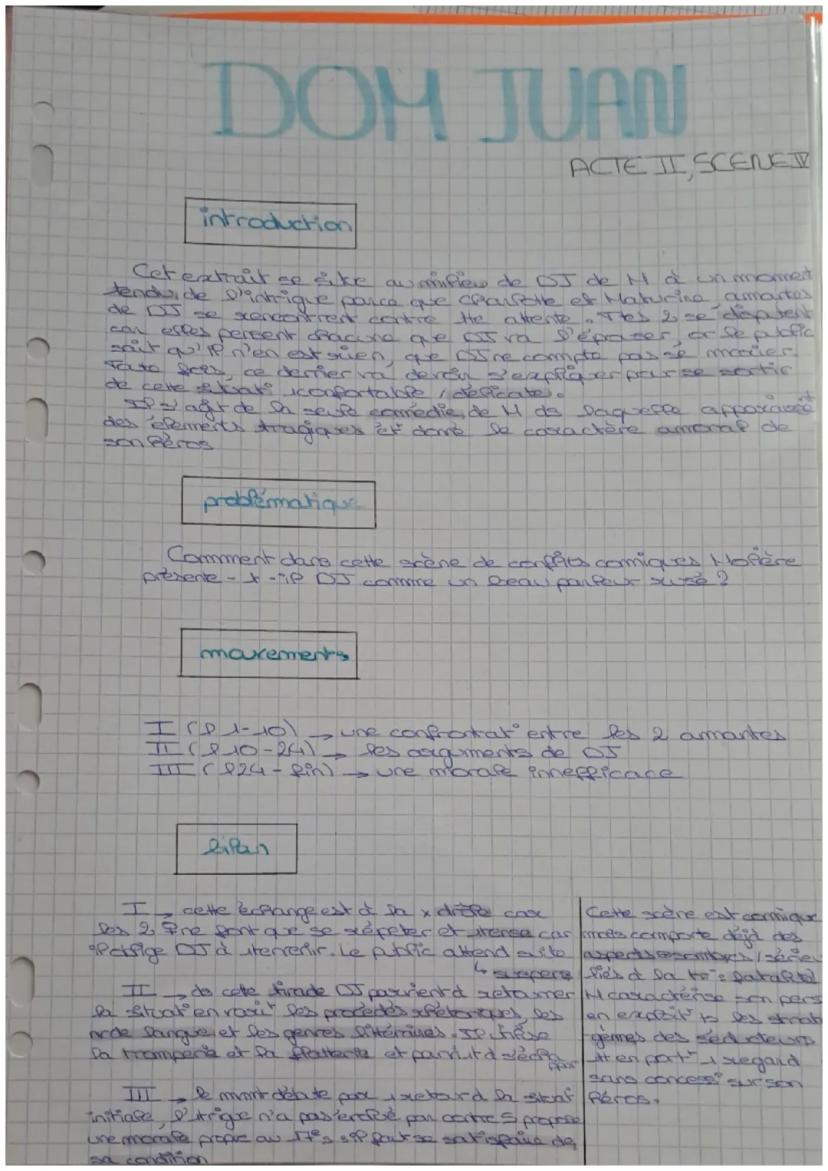 DOM JUAN
ACTE II, SCENE IV
introduction
Cet extrait se situe au milieu de DJ de M à un moment
tendu de l'intrigue parce que Charlotte et Maturine, amantes
de DJ se rencontrent contre tte attente. Ttes 2 se disputent
car elles pensent chacune que DJ va l'épouser, or le public
sait qu'il n'en est rien, que DJ ne compte pas se marier.
Toute fois, ce dernier va devoir s'expliquer pour se sortir
de cette situat° iconfortable / délicate.
Il s'agit de la seule comédie de M ds laquelle apparaissent
des éléments tragiques et dont le caractère amoral de
son héros
problématique
Comment dans cette scène de conflits comiques Molière
présente-t-il DJ comme un beau parleur rusé ?
mouvements
I (l 1-10) → une confrontat° entre les 2 amantes
II (l 10-24) → les arguments de DJ
III (l 24 - fin) → une morale innefficace
bilan
I → cette échange est à la x drôle car
les 2 ne font que se répéter et car
oblige DJ à . Le public attend
II → ds cete tirade DJ parvient à retourner
la situat° en les procédés rhétoriques, les
de langue et les genres littéraires. Il
la tromperie et la et
III → le mvmt débute par 1 retour à la situat°
initiale, l'itrigue n'a pas évolué par contre S propose
une morale propre au 17e s il faut se satisfaire de
sa condition
Cette scène est comique
mais comporte déjà des
aspects sombres /
liés à la fatalité
M caractérise son pers
en exploit ts les strat
gèmes des séducteurs
et en port 1 regard
sans concess° sur son
héros.